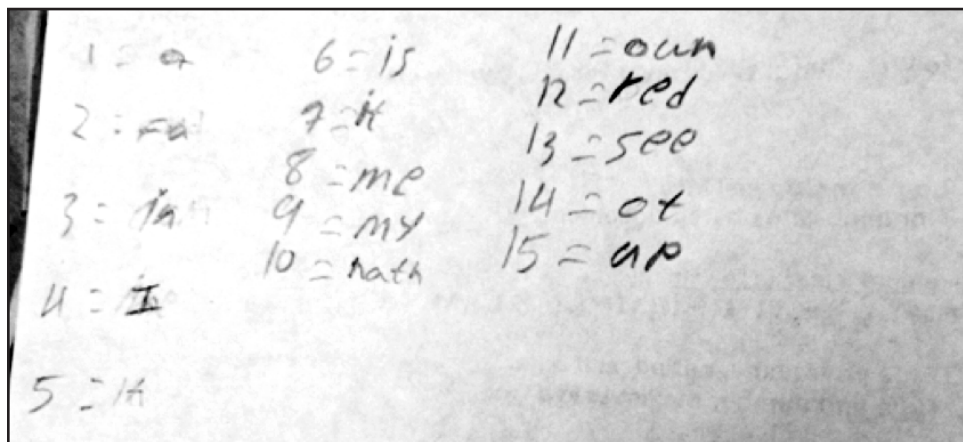 1 = a
2 =
3 = in
4 = I
5 = it
6 = is
7 = it
8 = me
9 = my
10 = nath
11 = oun
12 = red
13 = see
14 = ot
15 = up